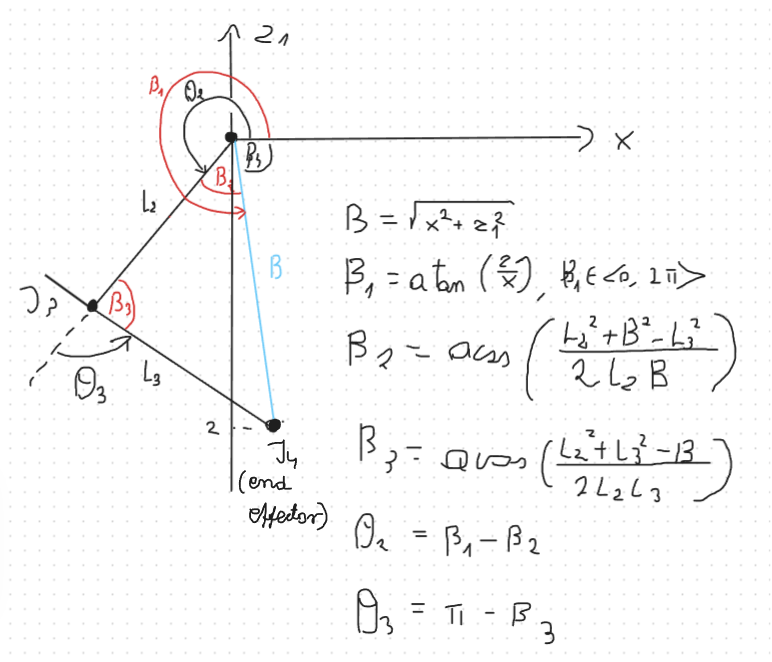 z₁
β₁
θ₂
x
β₃
β₂
L₂
B
J₃
β₃
L₃
θ₃
z
J₄
(end
effector)
B = √(x² + z₁²)
β₁ = atan (z/x), β₁ ∈ <0, 2π>
β₂ = acos ((L₂² + B² - L₃²) / (2 L₂ B))
β₃ = acos ((L₂² + L₃² - B) / (2 L₂ L₃))
θ₂ = β₁ - β₂
θ₃ = π - β₃